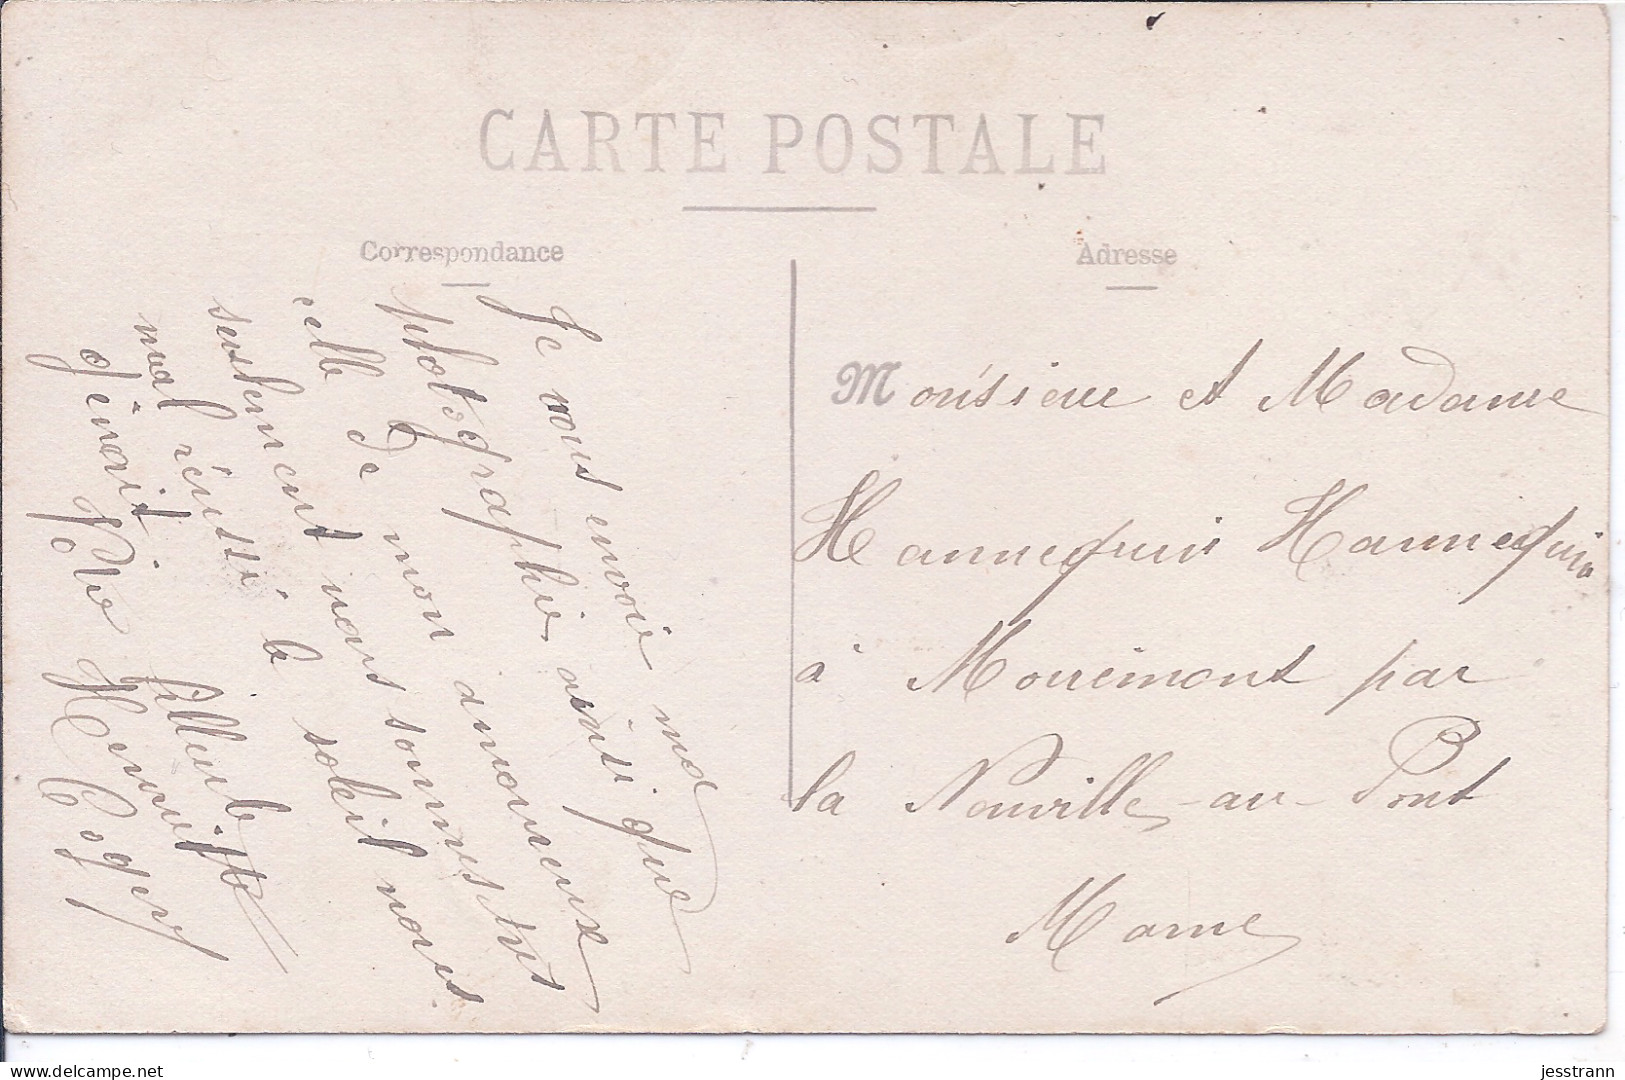 CARTE POSTALE
Correspondance
Je vous envoie ma
photographie ainsi que
celle de mon amoureux
seulement nous sommes très
mal réussi le soleil nous
gênait. filleule
Henriette
Cogery
Adresse
Monsieur et Madame
Hannequin Hannequin
à Moiremont par
la Neuville-au-Pont
Marne
delcampe.net
jesstrann